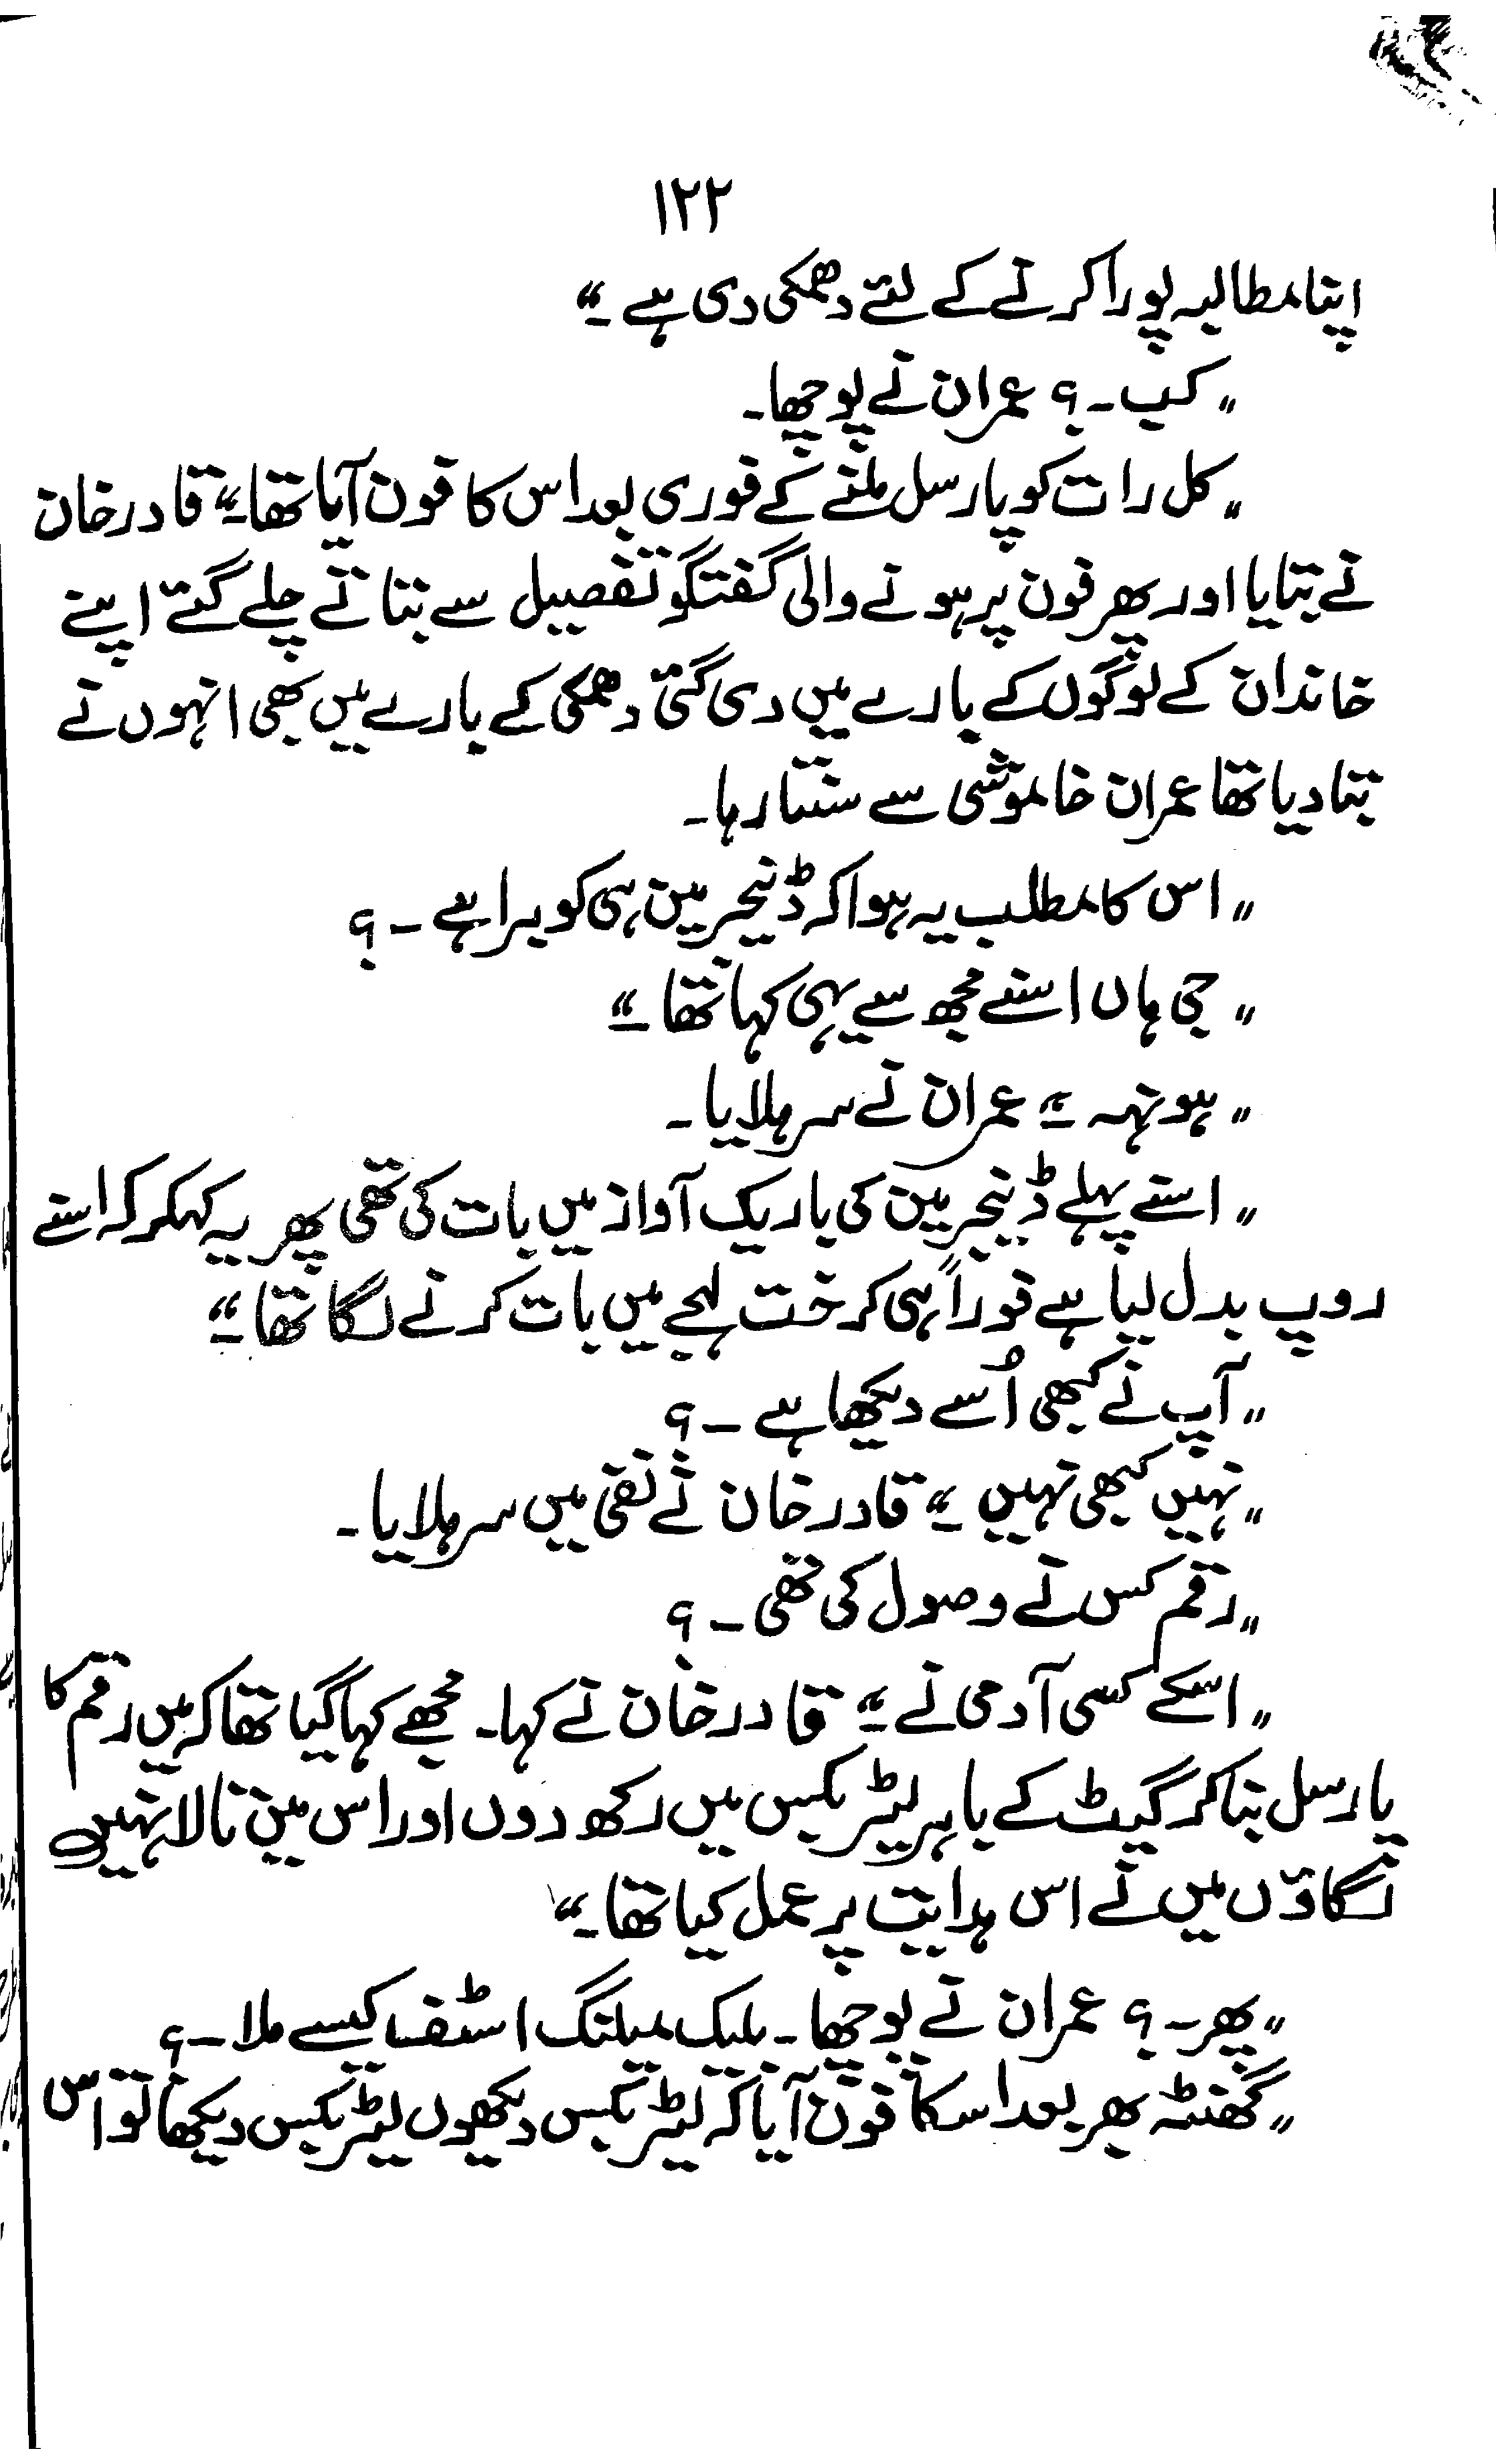 ۱۲۲
اپنا مطالبہ پورا کرنے کے لئے دھمکی دی ہے ۔"
" کب ۔ ؟ عمران نے پوچھا ۔
" کل رات کو پارسل ملنے کے فوری بعد اس کا فون آیا تھا ۔" قادر خان
نے بتایا اور پھر فون پر ہونے والی گفتگو تفصیل سے بتاتے چلے گئے اپنے
خاندان کے لوگوں کے بارے میں دی گئی دھمکی کے بارے میں بھی انہوں نے
بتا دیا تھا عمران خاموشی سے سنتا رہا ۔
" اس کا مطلب یہ ہوا کہ ڈینجر مین ہی کوبرا ہے ۔ ؟
" جی ہاں اسنے مجھ سے یہی کہا تھا ۔"
" ہونہہ ۔" عمران نے سر ہلایا ۔
" اسنے پہلے ڈینجر مین کی باریک آواز میں بات کی تھی پھر یہ کہکر کہ اسنے
روپ بدل لیا ہے فوراً ہی کرخت لہجے میں بات کرنے لگا تھا ۔"
" آپ نے کبھی اُسے دیکھا ہے ۔ ؟
" نہیں کبھی نہیں ۔" قادر خان نے نفی میں سر ہلایا ۔
" رقم کس نے وصول کی تھی ۔ ؟
" اسکے کسی آدمی نے ۔" قادر خان نے کہا ۔ مجھے کہا گیا تھا کہ میں رقم کا
پارسل بنا کر گیٹ کے باہر لیٹر بکس میں رکھ دوں اور اس میں تالا نہیں
لگاؤں میں نے اس ہدایت پر عمل کیا تھا ۔"
" پھر ۔ ؟ عمران نے پوچھا ۔ بلیک میلنگ اسٹف کیسے ملا ۔ ؟
" گھنٹہ بھر بعد اسکا فون آیا کہ لیٹر بکس دیکھوں لیٹر بکس دیکھا تو اس